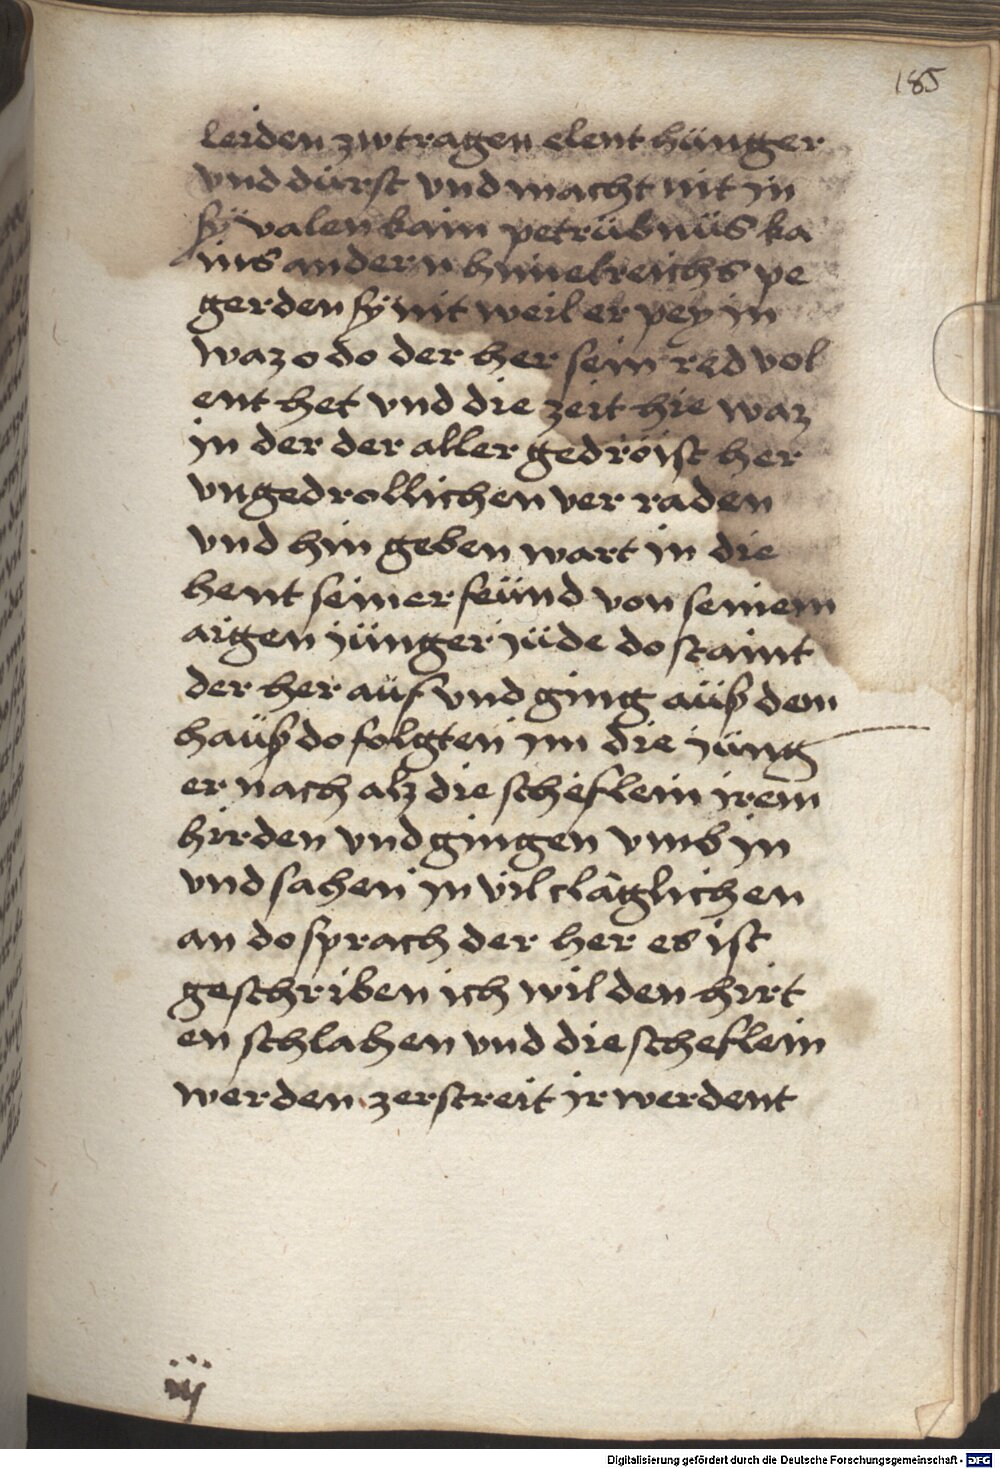 185
leiden zw tragen elent hünger
vnd dürst vnd macht nit in
sÿ valen kain petrübnüs ka
ins andern himelreichs pe
gerden sÿ nit weil er pey in
waz o do der her sein red vol
ent het vnd die zeit hie waz
in der der aller gedröist her
vngedrollichen ver raden
vnd hin geben wart in die
hent seiner feünd von seinem
aigen jünger jüde do staint
der her aüf vnd ging aüß dem
haüß do folgten im die jüng
er nach alz die scheflein irem
hirden vnd gingen vmb in
vnd sahen in vil cläglichen
an do sprach der her es ist
geschriben ich wil den hirt
en schlahen vnd die scheflein
werden zerstreit ir werdent
iij
Digitalisierung gefördert durch die Deutsche Forschungsgemeinschaft - DFG